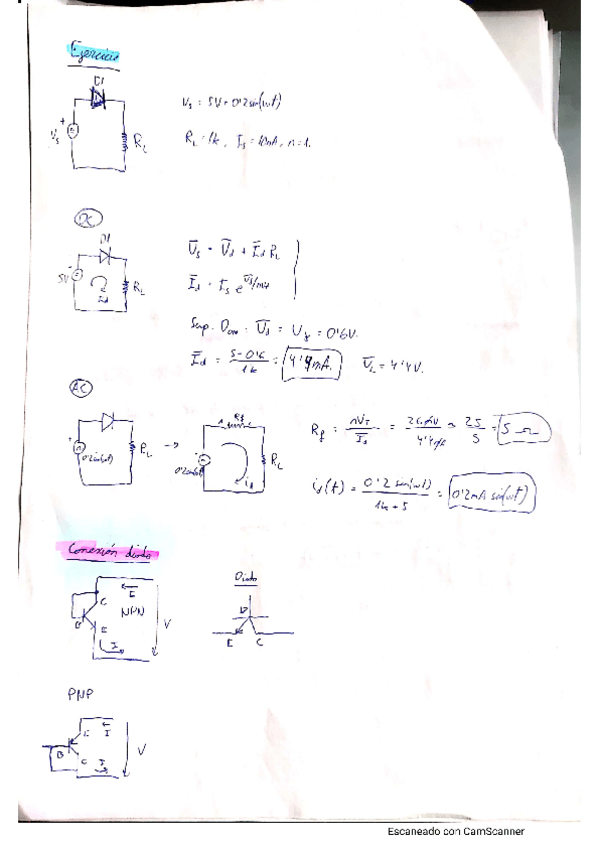 Ejercicio
D1
Vs = 5V + 0'2 sin(wt)
+
Vs
RL
RL = 1k, Is = 10nA, n = 1.
DC
D1
5V
Id
RL
Vs = Vd + Id RL
Id = Is e
Sup. Don. Vd = Vγ = 0'6V.
Id = 5 - 0'6 / 1k = 4'4mA. VL = 4'4V.
AC
0'2sin(wt)
RL
→
Rf
0'2sin(wt)
id
RL
Rf = nVT / Is = 26mV / 4'4mA ≈ 25 / 5 = 5 Ω
id(t) = 0'2 sin(wt) / 1k + 5 = 0'2mA sin(wt)
Conexión diodo
I
C
NPN
B
E
I
V
Diodo
B
E C
PNP
E
I
B
C
I
V
Escaneado con CamScanner